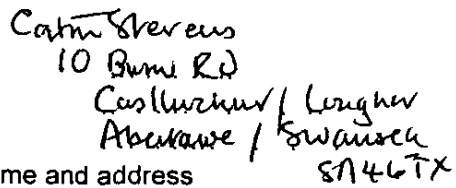 Catrin Stevens
10 Bwrw Rd
Casllwchwr / Loughor
Abertawe / Swansea
SA4 6TX
me and address